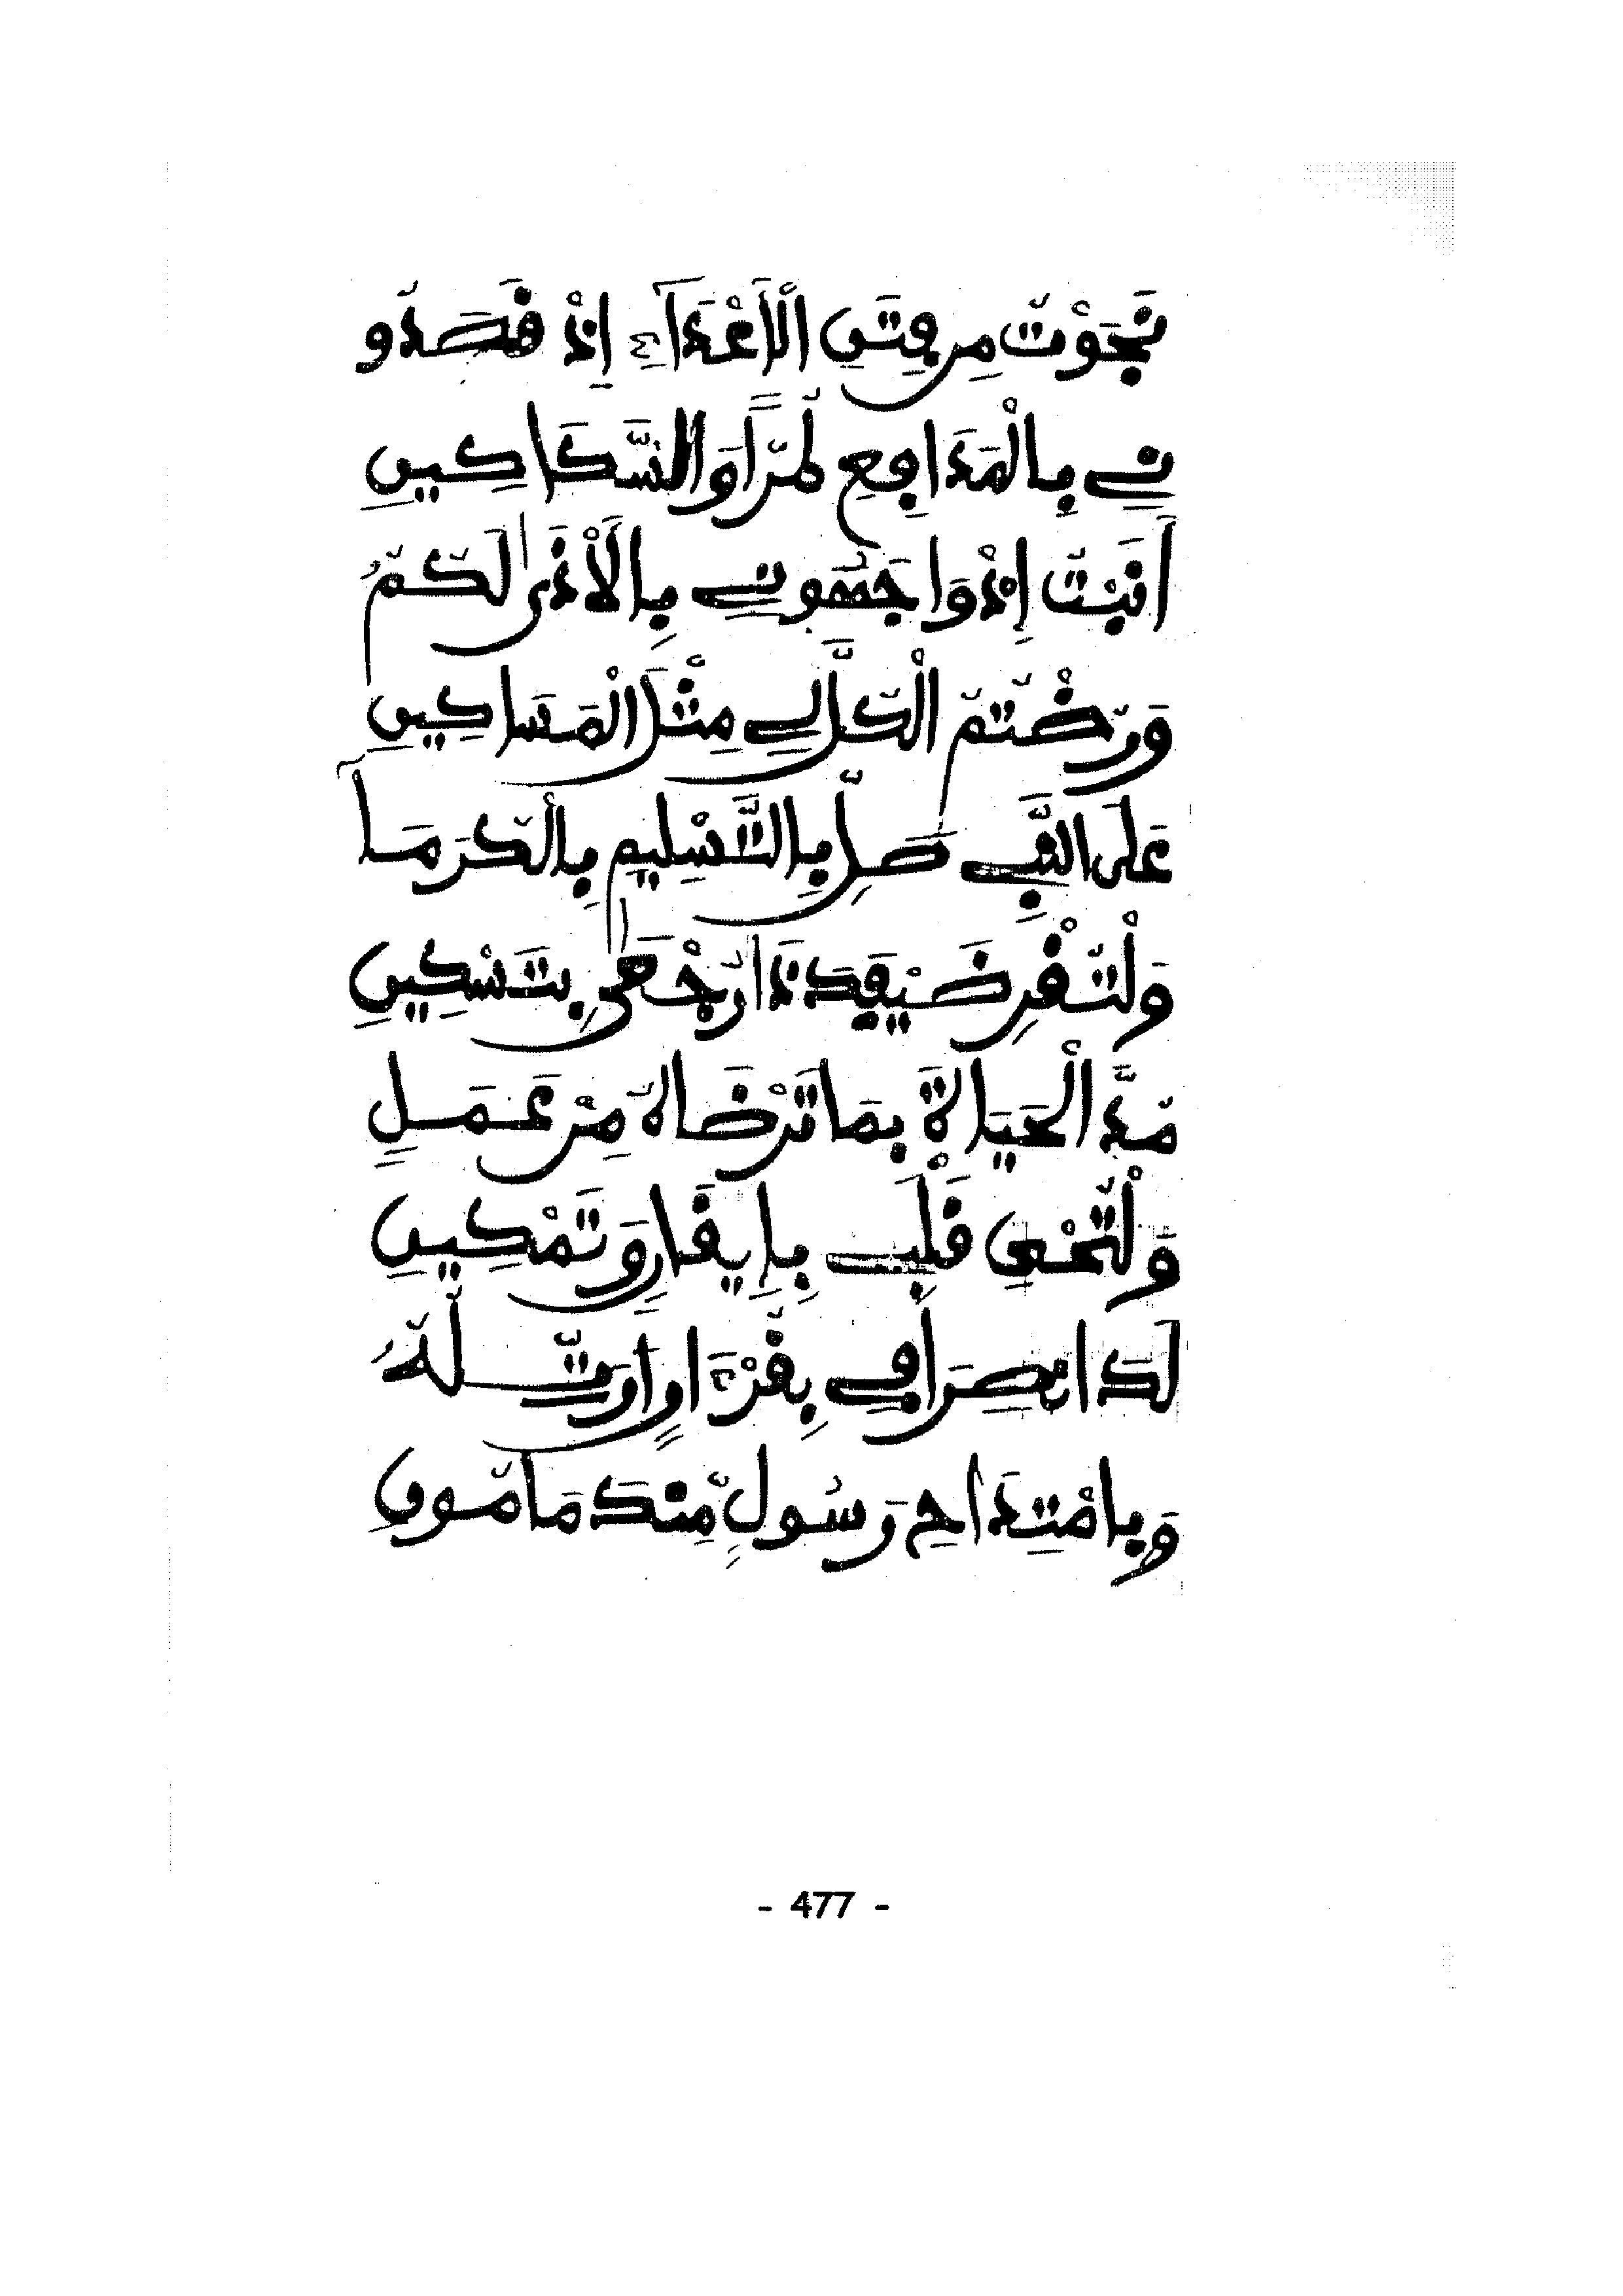 نَجَوْتُ مِن فِتَنِ الْأَعْدَاءِ إِذْ قَصَدُو
نِي بِالْمَدَافِعِ لَمَّراً وَالسَّكَاكِينِ
أَنَبْتُ إِذْ وَاجَهُونِي بِالْأَذَى لَكُمُ
وَرُضْتُمُ الْكُلَّ لِي مِثْلَ الْمَسَاكِينِ
عَلَى النَّبِي صَلِّ بِالتَّسْلِيمِ بِالْكُرَمَا
وَلْتَفْرِ ضَيْفِكَ ذَا رُجْعَى بِتَسْكِينِ
مُدَّ الْحَيَاةَ بِمَا تَرْضَاهُ مِنْ عَمَلٍ
وَلْتُحْيِ قَلْبِي بِإِيقَانٍ وَتَمْكِينِ
لَكَ انْصِرَافِي بِقُرْءَانٍ أُرَتِّلُهُ
وَبِامْتِدَاحِ رَسُولٍ مِّنْكَ مَأْمُونِ
- 477 -